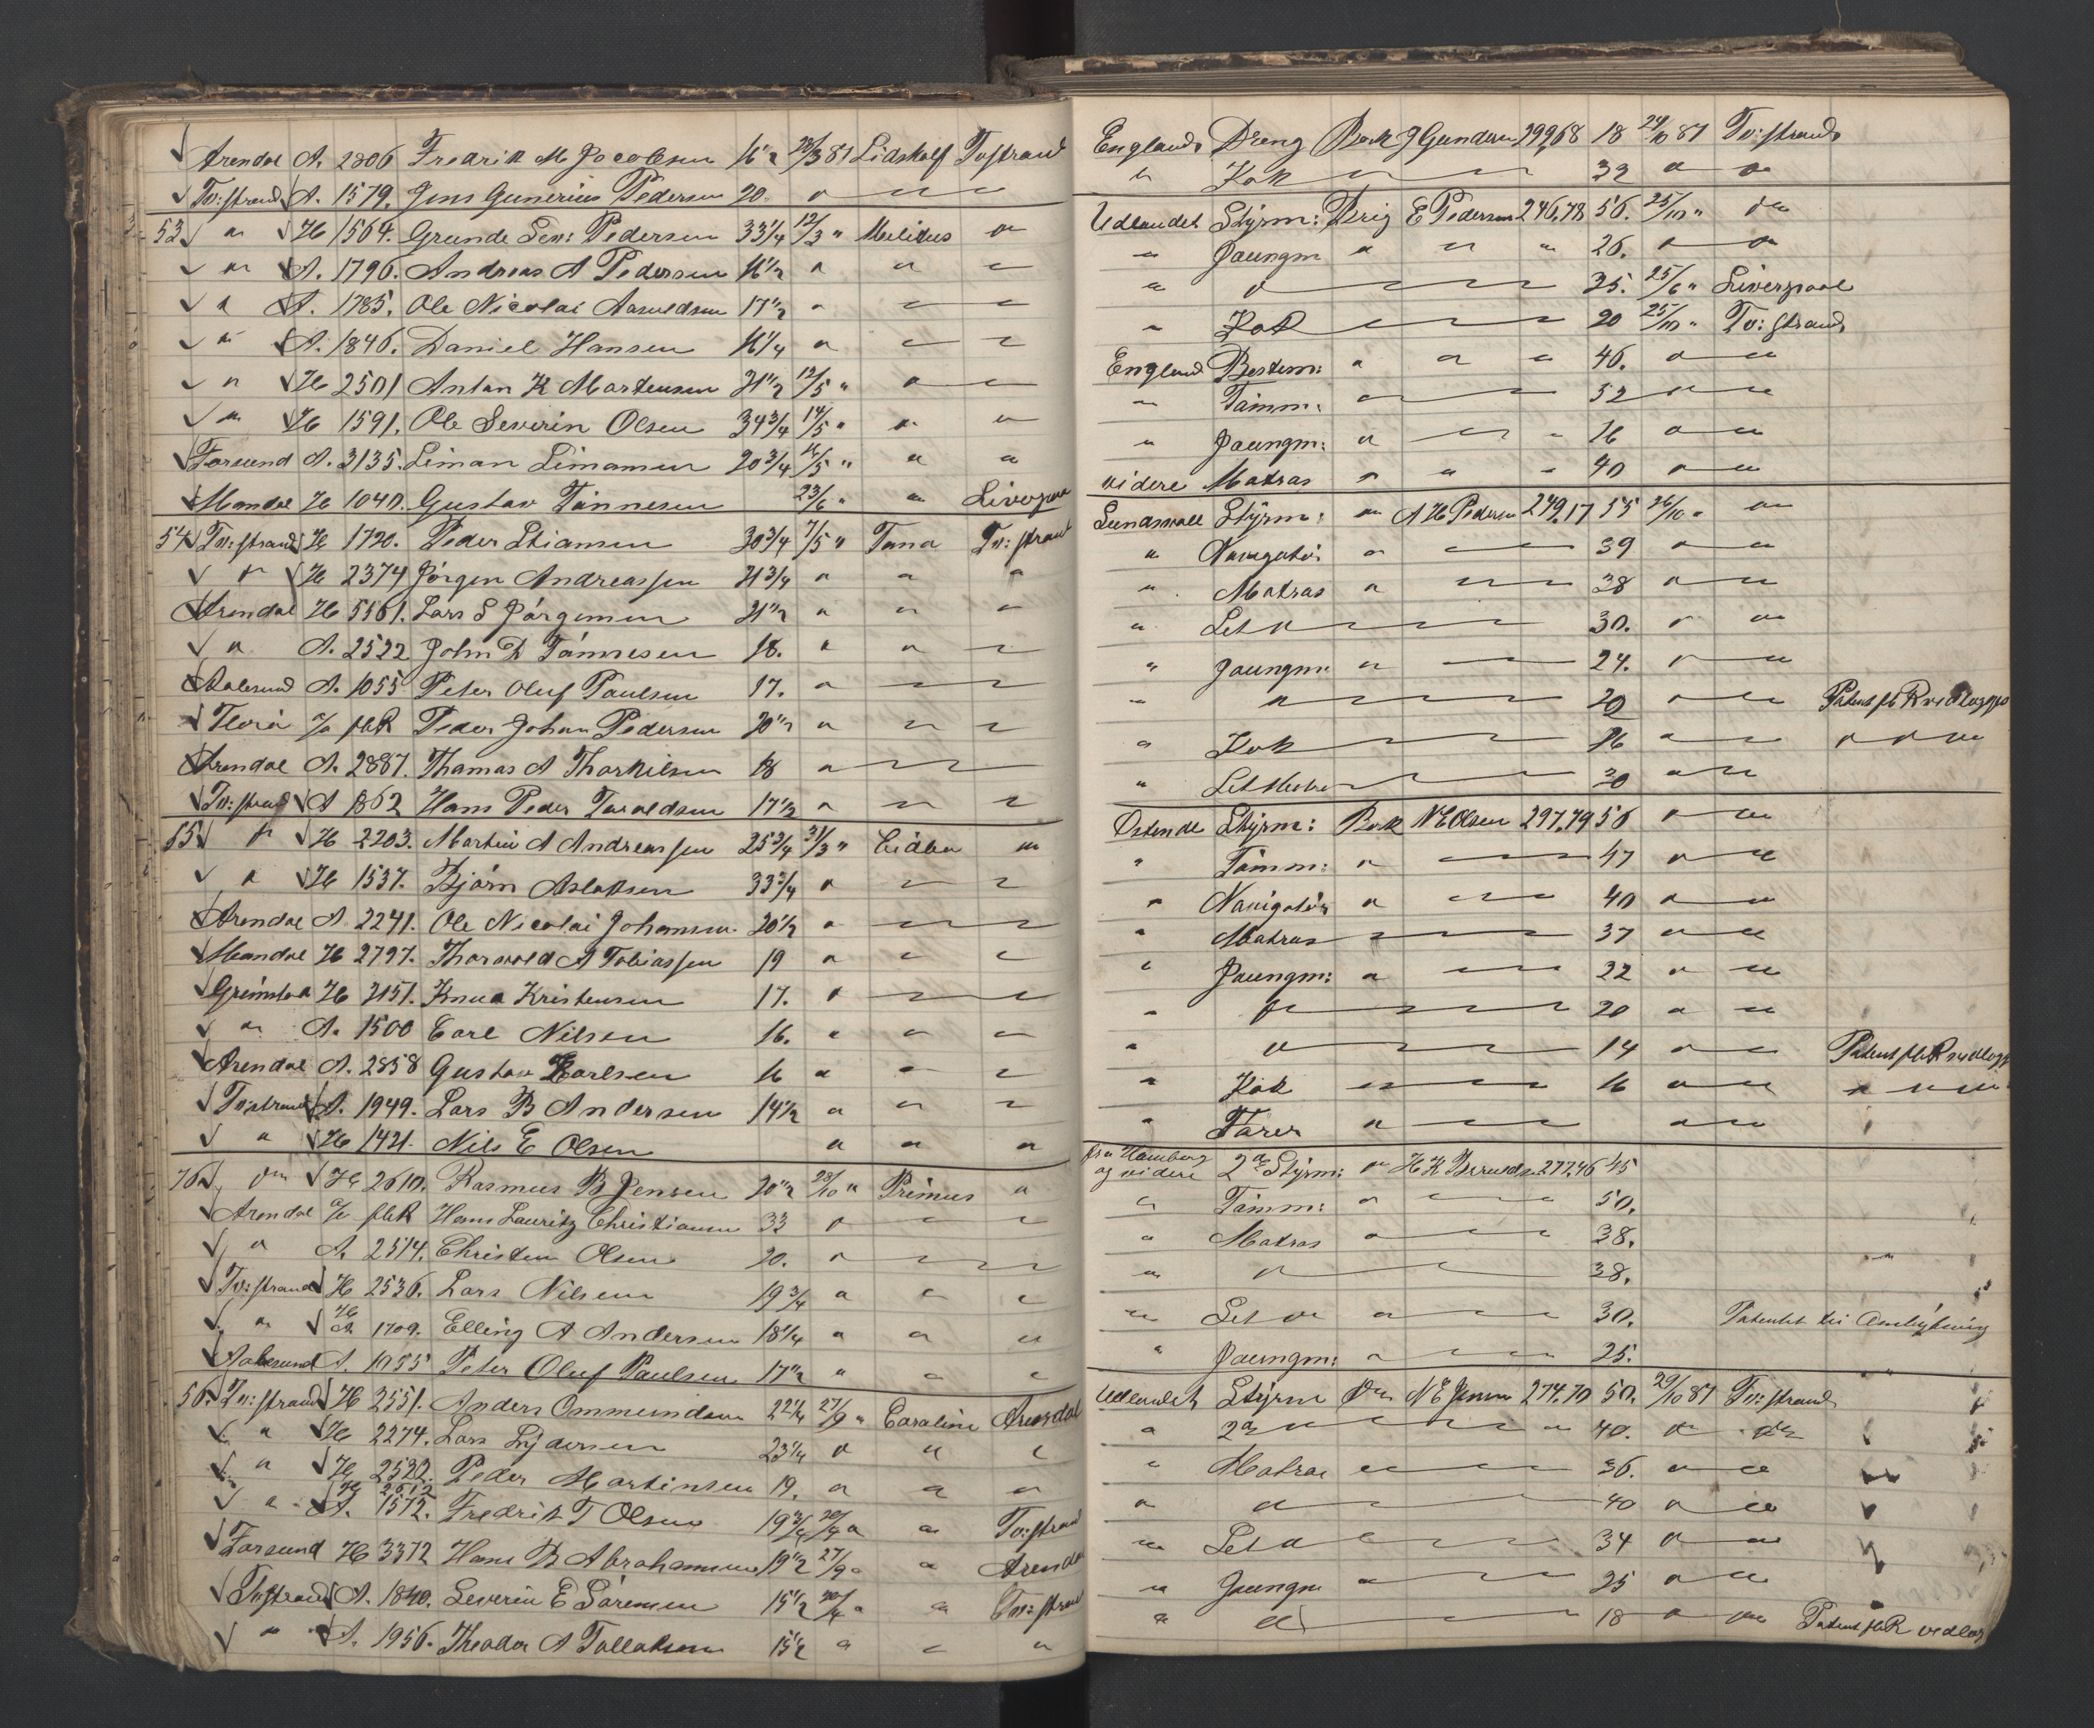 Arendal A. 2806 Fredrik M Jacobsen 16 1/2 28/3 81 Lidskalf Tv:strand
Tv:strand A. 1579. Jens Gunerius Pedersen 20. " "
53 " H 1564. Grunde Sev: Pedersen 33 1/4 12/3 " Melideus "
" A. 1796. Andreas A Pedersen 16 1/2 " " "
" A. 1785. Ole Nicolai Aasveldsen 17 1/2 " " "
" A. 1846. Daniel Hansen 16 1/4 " " "
" H 2501 Anton K Mortensen 21 1/2 12/5 " " "
" H 1591. Ole Severin Olsen 34 3/4 14/5 " " "
Farsund A. 3135. Siman Simansen 20 3/4 16/5 " " "
Mandal H 1040. Gustav Tönnesen 23/6 " " Liverpool
54 Tv:strand H 1720. Peder Stiansen 30 3/4 7/5 " Tana Tv:strand
" H 2374 Jörgen Andreassen 21 3/4 " " "
Arendal H 5561. Lars S Jörgensen 21 1/2 " " "
" A. 2522 John D Tönnesen 18. " " "
Aalesund A. 1055 Peter Oluf Paulsen 17. " " "
Flora Peder Johan Pedersen 20 1/2 " " "
Arendal A. 2887. Thomas A Thorkilsen 18 " "
Tv:strand A 1862 Hans Peder Taraldsen 17 1/2 " " "
55 " H 2203. Martin A Andreassen 25 3/4 31/3 " "
" H 1537. Björn Aslaksen 33 3/4 " " "
Arendal A. 2241. Ole Nicolai Johansen 20 1/2 " "
Mandal H 2797. Thorvold A Tobiassen 19 " " "
Grimstad H 2151. Knud Kristensen 17. " "
" A. 1500 Carl Nilsen 16. " " "
Arendal A. 2858 Gustav Karlsen 16 " " "
Tv:strand A. 1949. Lars B Andersen 14 1/2 " " "
" H 1421. Nils E Olsen " " "
76 " H 2610. Rasmus B Jensen 20 1/2 28/10 " Primus "
Arendal Hans Lauritz Christiansen 33 " " "
" A. 2514. Christen Olsen 20. " "
Tv:strand H 2536. Lars Nilsen 19 3/4 " " "
" H A. 1709. Elling A Andersen 18 1/4 " " "
Aalesund A. 1055 Peter Oluf Paulsen 17 1/2 " " "
56. Tv:strand H 2551. Anders Ommundsen 22 1/4 27/9 " Caroline Arendal
" H 2274. Lars Lydersen 23 1/4 " " "
" H 2522. Peder Martinsen 19. " " "
" H 2612 A. 1572. Fredrik T Olsen 19 3/4 " " Tv:strand
Farsund H 3372 Hans B Abrahamsen 19 1/2 27/9 " " Arendal
Tv:strand A. 1840. Severin E Sörensen 15 1/2 " " Tv:strand
" A. 1956. Theodor A Tallaksen 15 1/2 " " "
England Dreng Bark J Gundersen 299,68 18 24/10 81 Tv:strand
" Kok " " 32 " "
Udlandet Styrm: Brig E Pedersen 246,78 56. 25/10 " "
" Jaungm " " " 26. " "
" " " 25. 25/6 " Liverpool
" Kok " 20 25/10 " Tv:strand
England Bestm: " " " 46. " "
" Tömm: " " 52 " "
" Jaungm: " " " 16 " "
videre Matros " " " 40 " "
Sundsvall Styrm: " A H Pedersen 249,17 55 26/10 " "
" Navigatör " " 39 " "
" Matros " " 38 " "
" Let " " 30. " "
" Jaungm: " " 24. " "
" " " 20 " " Patent vedlagges
" Kok " 16 " " " " "
" Let Matros " 30 " "
Ostende Styrm: Bark N E Olsen 297,79 56 " "
" Tömm: " " 47 " "
" Navigatör " " 40 " "
" Matros " 37 " "
" Jaungm: " " 22 " "
" " " 20 " "
" " " 14 " " Patent vedlagges
" Kok " " 16 " " " " "
" Förer " " " "
fra Hamburg
og videre 2den Styrm: " H K 277,46 45
" Tömm: " " 50.
" Matros " " 38.
" " " 38.
" Let " " " 30. Patentet til Ombytning
" Jaungm: " " 25.
Udlandet Styrm " N E Jensen 274,70 50. 29/10 81 Tv:strand
" 2den " " " 40. " "
" Matros " " 36. " "
" " " 40 " "
" Let " " 34 " "
" Jaungm " " 25 " "
" " " 18 " " Patent vedlag